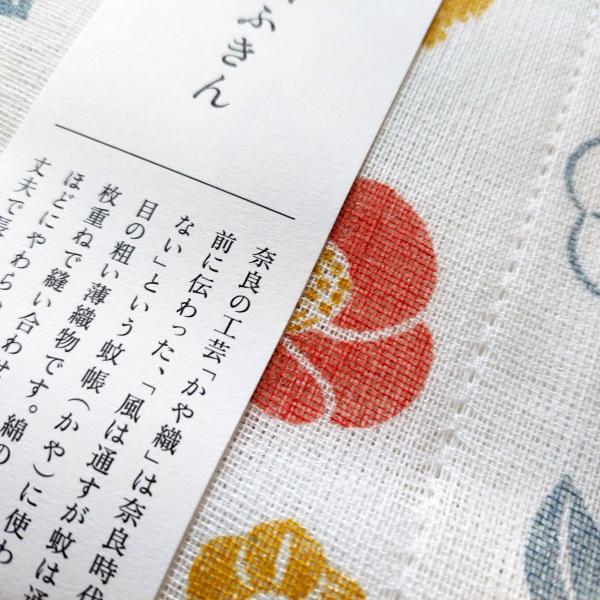 ふきん
奈良の工芸「かや織」は奈良時代
前に伝わった、「風は通すが蚊は通
ない」という蚊帳(かや)に使わ
目の粗い薄織物です。綿の
枚重ねで縫い合わせ
ほどにやわらか
丈夫で長